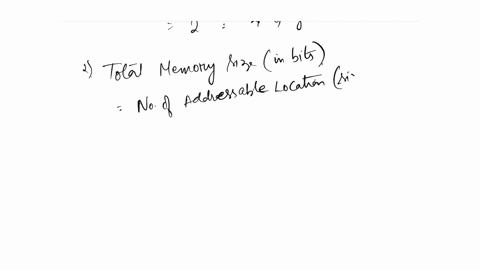 2) Total Memory size (in bits)
= No. of Addressable Location (si